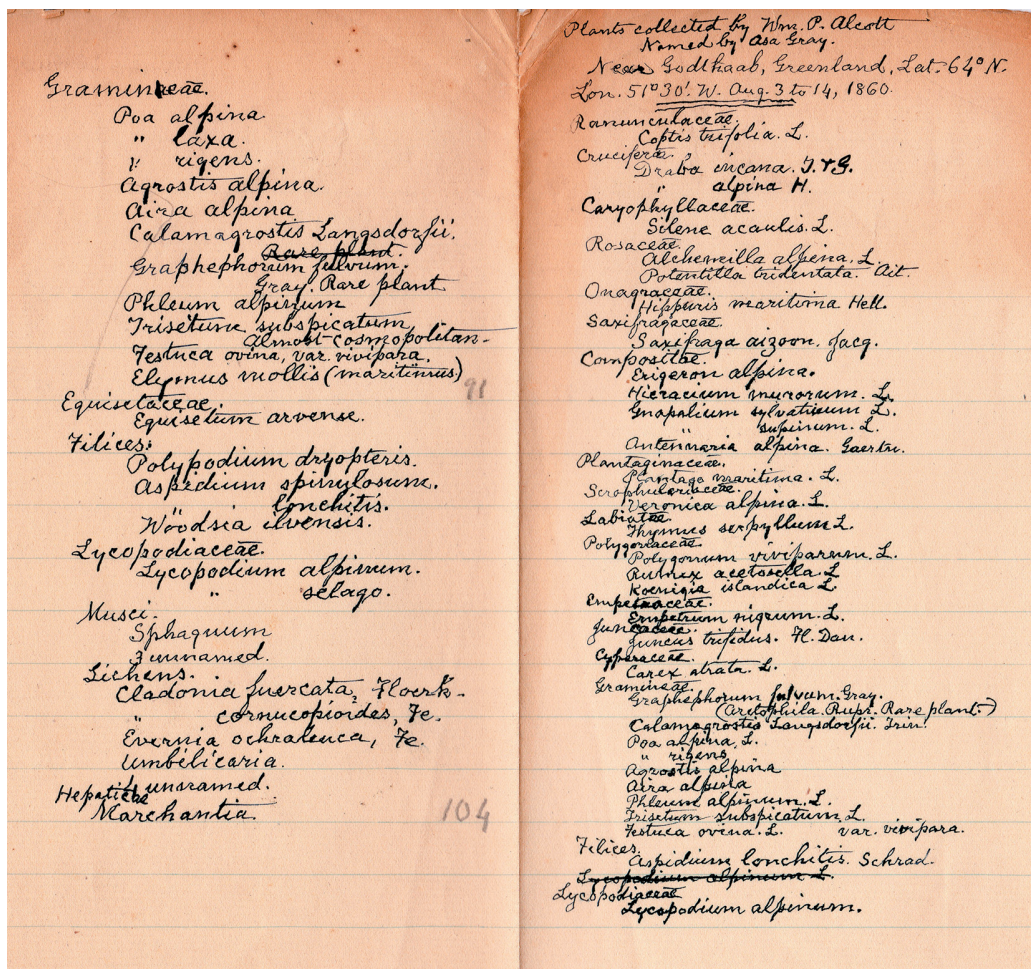 Gramineae.
Poa alpina
" laxa.
" rigens.
Agrostis alpina.
Aira alpina
Calamagrostis Langsdorfii.
Rare plant.
Graphephorum fulvum.
Gray. Rare plant
Phleum alpinum
Trisetum subspicatum
almost cosmopolitan-
Festuca ovina, var. vivipara.
Elymus mollis (maritimus)
91
Equisetaceae.
Equisetum arvense.
Filices.
Polypodium dryopteris.
Aspedium spinulosum.
lonchitis.
Woodsia ilvensis.
Lycopodiaceae.
Lycopodium alpinum.
" selago.
Musci.
Sphagnum
3 unnamed.
Lichens.
Cladonia fuercata, Floerk-
" cornucopioides, Fe.
Evernia ochraleuca, Fe.
Umbilicaria.
1 unnamed.
Hepaticae
Marchantia
104
Plants collected by Wm. P. Alcott
Named by Asa Gray.
Near Godthaab, Greenland, Lat. 64° N.
Lon. 51° 30'. W. Aug. 3 to 14, 1860.
Ranunculaceae.
Coptis trifolia. L.
Cruciferae.
Draba incana. T. & G.
" alpina H.
Caryophyllaceae.
Silene acaulis. L.
Rosaceae.
Alchemilla alpina. L.
Potentilla tridentata. Ait.
Onagraceae.
Hippuris maritima Hell.
Saxifragaceae.
Saxifraga aizoon. Jacq.
Compositae.
Erigeron alpina.
Hieracium murorum. L.
Gnapalium sylvaticum L.
" supinum. L.
Antennaria alpina. Gaertn.
Plantaginaceae.
Plantago maritima. L.
Scrophulariaceae.
Veronica alpina. L.
Labiatae.
Thymus serpyllum L.
Polygonaceae.
Polygonum viviparum. L.
Rumex acetosella. L
Koenigia islandica L.
Empetraceae.
Empetrum nigrum. L.
Juncaceae.
Juncus trifidus. Fl. Dan.
Cyperaceae.
Carex atrata. L.
Gramineae.
Graphephorum fulvum. Gray.
(Arctophila. Rupr. Rare plant-)
Calamagrostis Langsdorfii. Trin.
Poa alpina, L.
" rigens
Agrostis alpina
Aira alpina
Phleum alpinum. L.
Trisetum subspicatum, L
Festuca ovina. L. var. vivipara.
Filices.
Aspidium lonchitis. Schrad.
Lycopodium alpinum L.
Lycopodiaceae
Lycopodium alpinum.